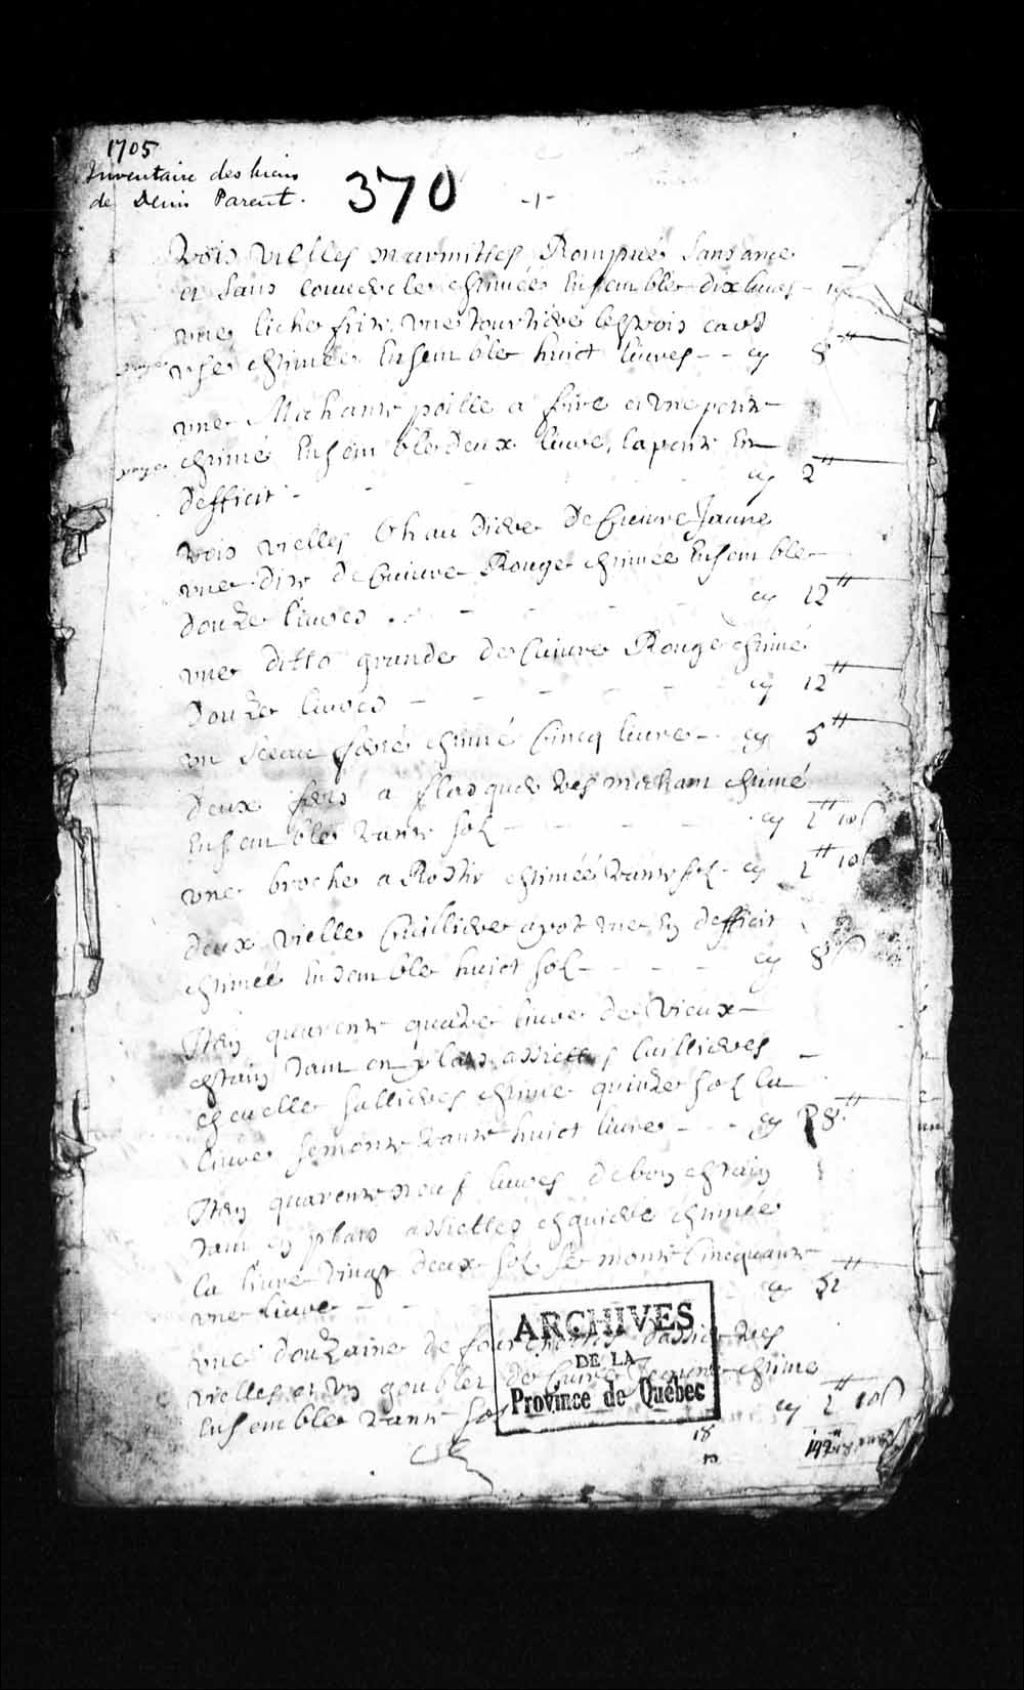 1705
Inventaire des biens
de Denis Parent.
370
-1-
trois vielles marmittes Rompuës sans ance
et sans couvercle estimées Ensemble dix livres - 10
une liche frite, une tourtiere les trois
estimée Ensemble huict livres - - cy 8#
une Mechante poille a frire et une petite
estimé Ensemble deux livre, la petite En
defficit - - - cy 2#
trois vielles Chaudiere De Cuivre Jaune
une ditte de Cuivre Rouge estimée Ensemble
douze livres - - - cy 12#
une ditto grande de Cuivre Rouge estimé
douze livres - - - - cy 12#
un seau feré estimé Cincq livre - cy 5#
deux fers a flasquer tres mechant estimé
Ensemble trante sol - - - cy 1# 10s
une broche a Rostir estimée trante sol - cy 1# 10s
deux vielle Cuilliere a pot une En defficit
estimée Ensemble huict sol - - - cy 8s
Item quarente quatre livre de Vieux
estain tant en plats assiettes Cuillieres
escuelle sallieres estimé quinze sol la
livre se monte trante huict livre - - - cy 38#
Item quarente nouf livres de bon estain
tant en plats assiettes esguiere estimée
la livre vingt deux sol se monte Cincquante
une livre - - cy 51#
une douzaine de fourchettes d'assiettes
vielles et un goublet de Cuivre Jaune estimé
Ensemble trante sol cy 1# 10s
ARCHIVES
DE LA
Province de Québec
18